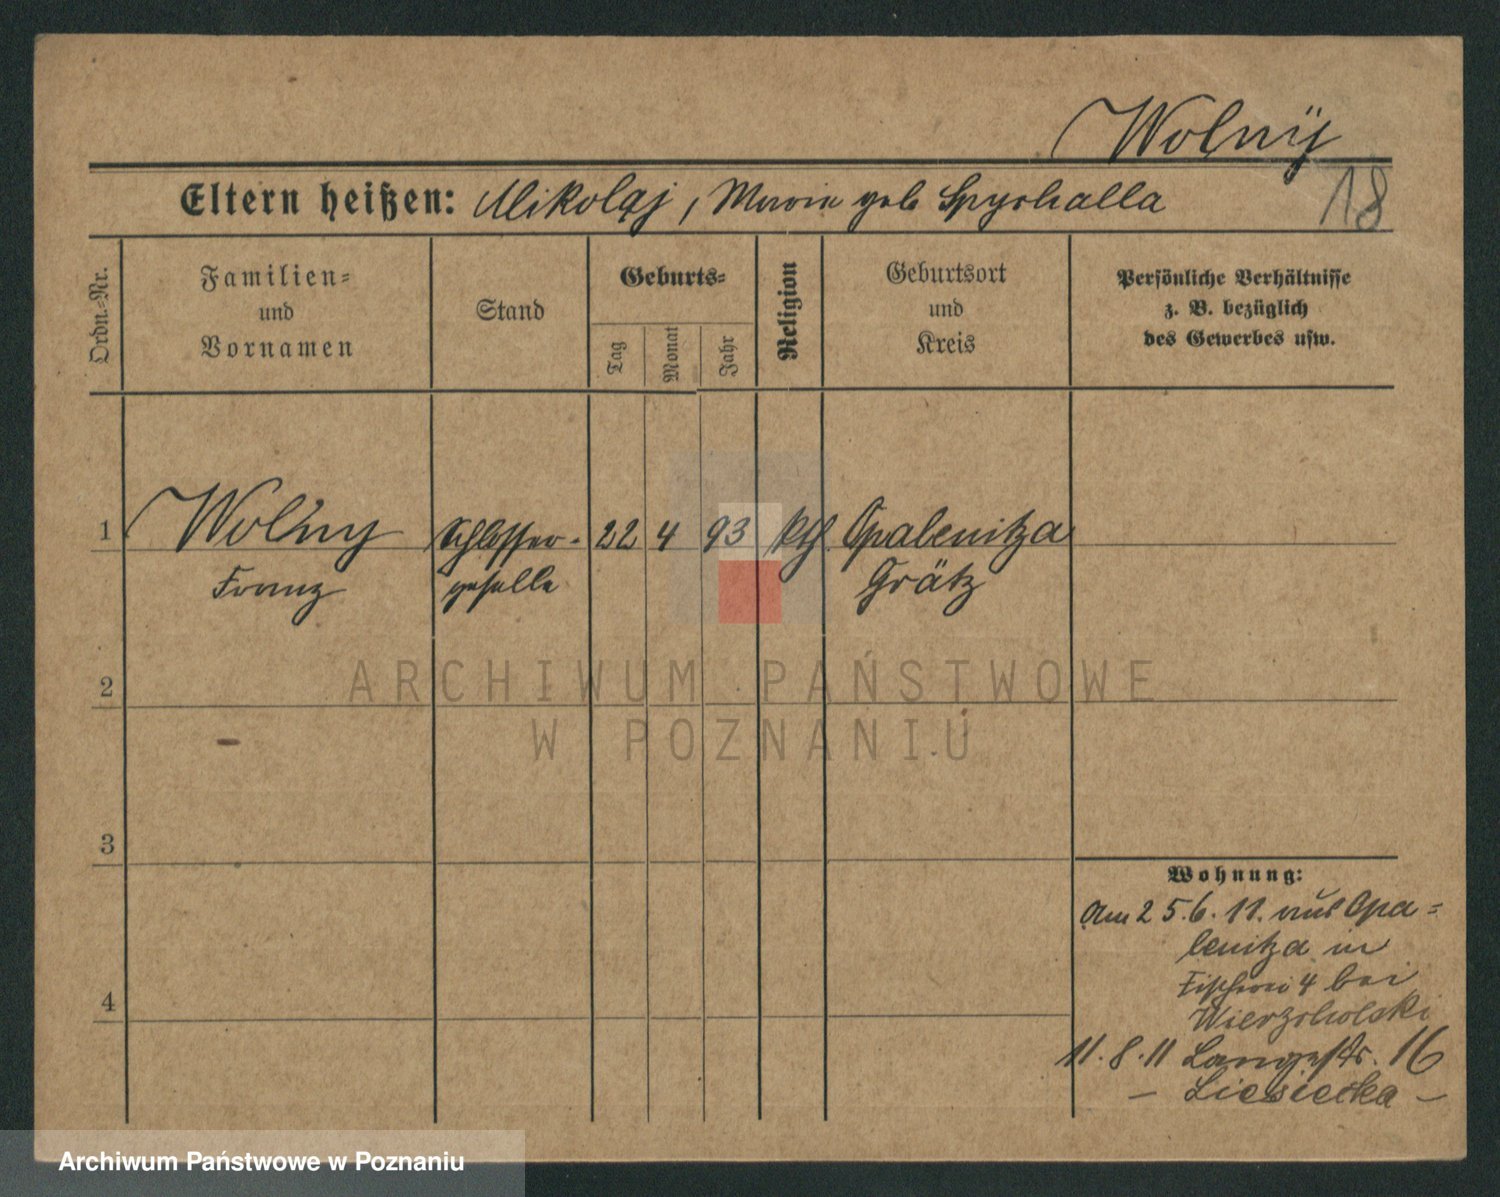 Wolnÿ
Eltern heißen: Mikolaj, Marie geb Spychalla
18
Ordn.-Nr.
Familien-
und
Vornamen
Stand
Geburts-
Tag
Monat
Jahr
Religion
Geburtsort
und
Kreis
Persönliche Verhältnisse
z. B. bezüglich
des Gewerbes usw.
1 Wolny Schlosser- 22 4 93 kth Opalenitza
Franz geselle Grätz
2
ARCHIWUM PAŃSTWOWE
W POZNANIU
3
Wohnung:
Am 25.6.11. aus Opa-
lenitza in
Fischerei 4 bei
4
Wierzcholski
11.8.11 Langestr. 16
– Liesiecka –
Archiwum Państwowe w Poznaniu